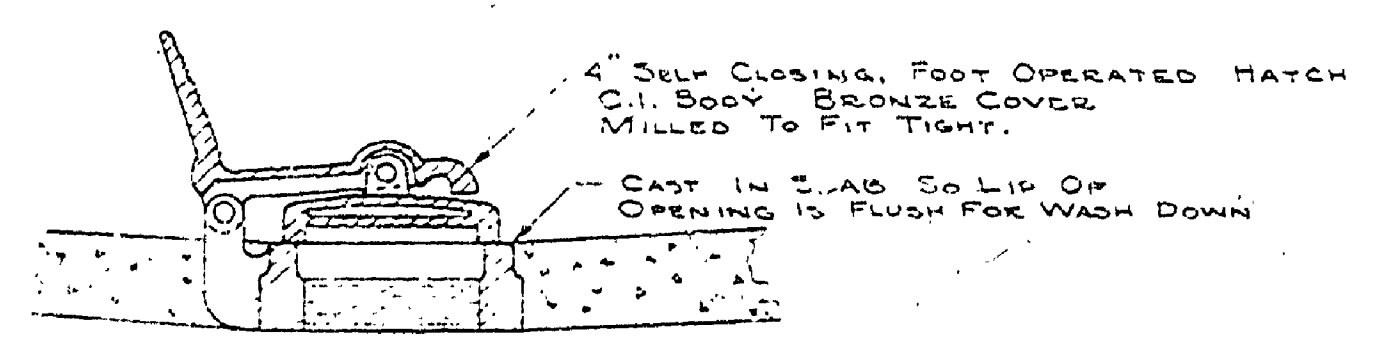 4" SELF CLOSING, FOOT OPERATED HATCH
C.I. BODY BRONZE COVER
MILLED TO FIT TIGHT.
CAST IN SLAB SO LIP OF
OPENING IS FLUSH FOR WASH DOWN